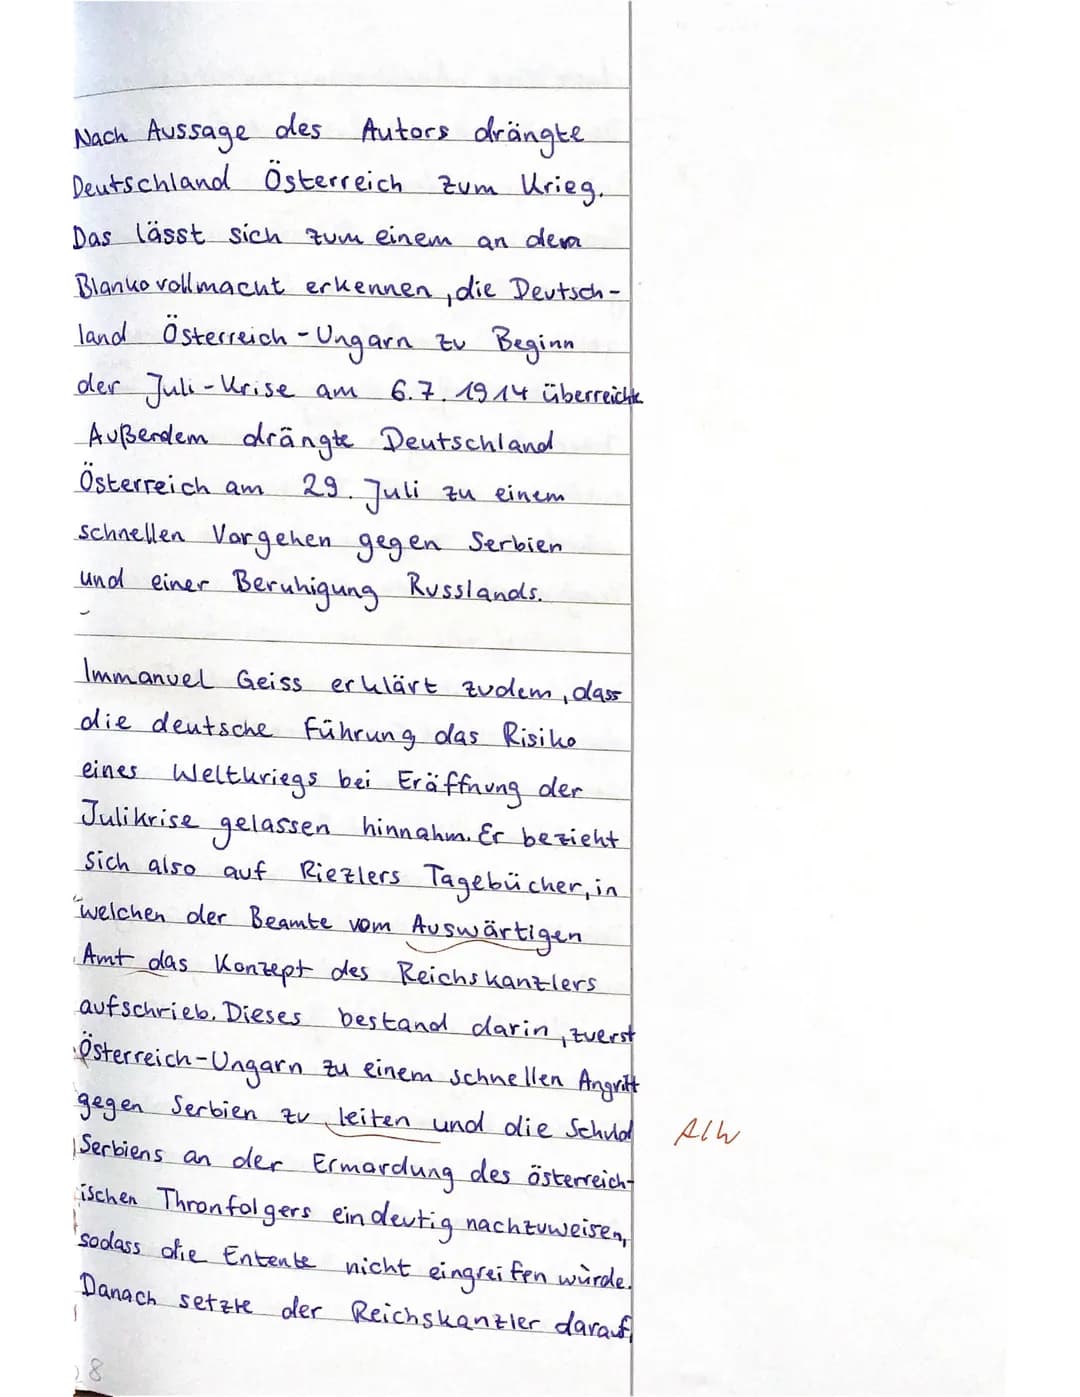 Nach Aussage des Autors drängte
Deutschland Österreich zum Krieg.
Das lässt sich zum einem an der
Blankovollmacht erkennen, die Deutsch-
land Österreich-Ungarn zu Beginn
der Juli-Krise am 6.7.1914 überreichte
Außerdem drängte Deutschland
Österreich am 29. Juli zu einem
schnellen Vorgehen gegen Serbien
und einer Beruhigung Russlands.
Immanuel Geiss erklärt zudem, dass
die deutsche Führung das Risiko
eines Weltkriegs bei Eröffnung der
Julikrise gelassen hinnahm. Er bezieht
sich also auf Riezlers Tagebücher, in
welchen der Beamte vom Auswärtigen
Amt das Konzept des Reichskanzlers
aufschrieb. Dieses bestand darin, zuerst
Österreich-Ungarn zu einem schnellen Angriff
gegen Serbien zu leiten und die Schuld
A/W
Serbiens an der Ermordung des österreich-
ischen Thronfolgers eindeutig nachzuweisen,
sodass die Entente nicht eingreifen würde.
Danach setzte der Reichskanzler darauf,
8